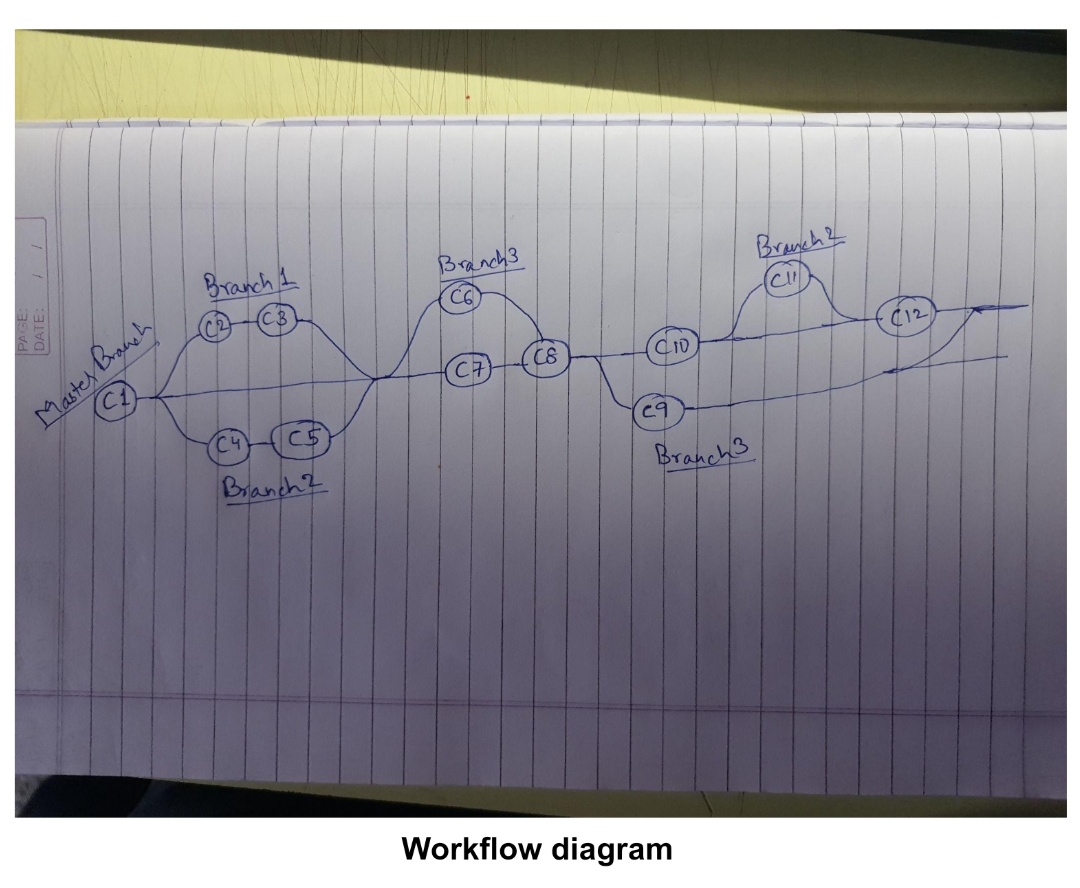 PAGE:
DATE: / /
Master Branch
C1
Branch 1
C2
C3
C4
C5
Branch2
Branch3
C6
C7
C8
C10
C9
Branch3
Branch2
C11
C12
Workflow diagram